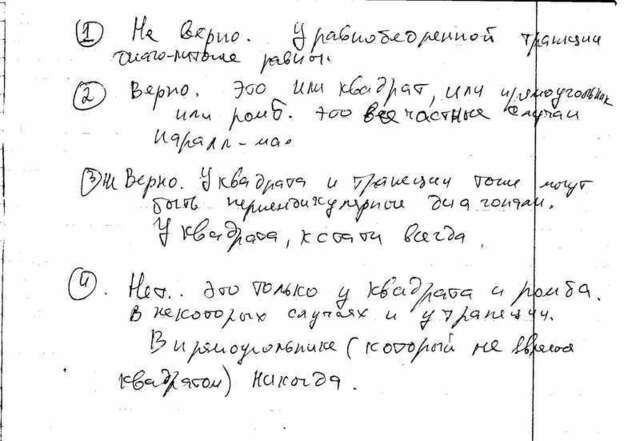 ① Не верно. У равнобедренной трапеции
диагонали равны.
② Верно. Это или квадрат, или прямоугольник
или ромб. Это все частные случаи
паралл-ма.
③ Верно. У квадрата и трапеции тоже могут
быть перпендикулярные диагонали.
У квадрата, кстати всегда.
④. Нет.. это только у квадрата и ромба.
В некоторых случаях и у трапеции.
В прямоугольнике (который не явл-ся
квадратом) никогда.